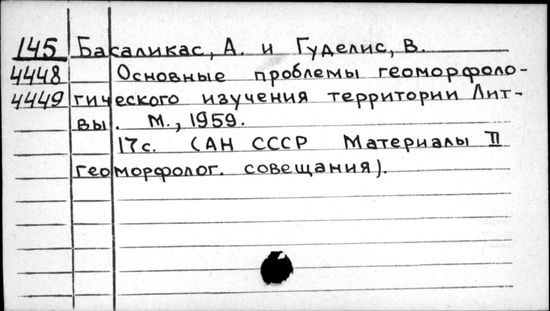 145 Басаликас, А. и Гуделис, В.
4448 Основные проблемы геоморфоло-
4449 гического изучения территории Лит-
вы. М., 1959.
17с. (АН СССР Материалы II
геоморфолог. совещания).